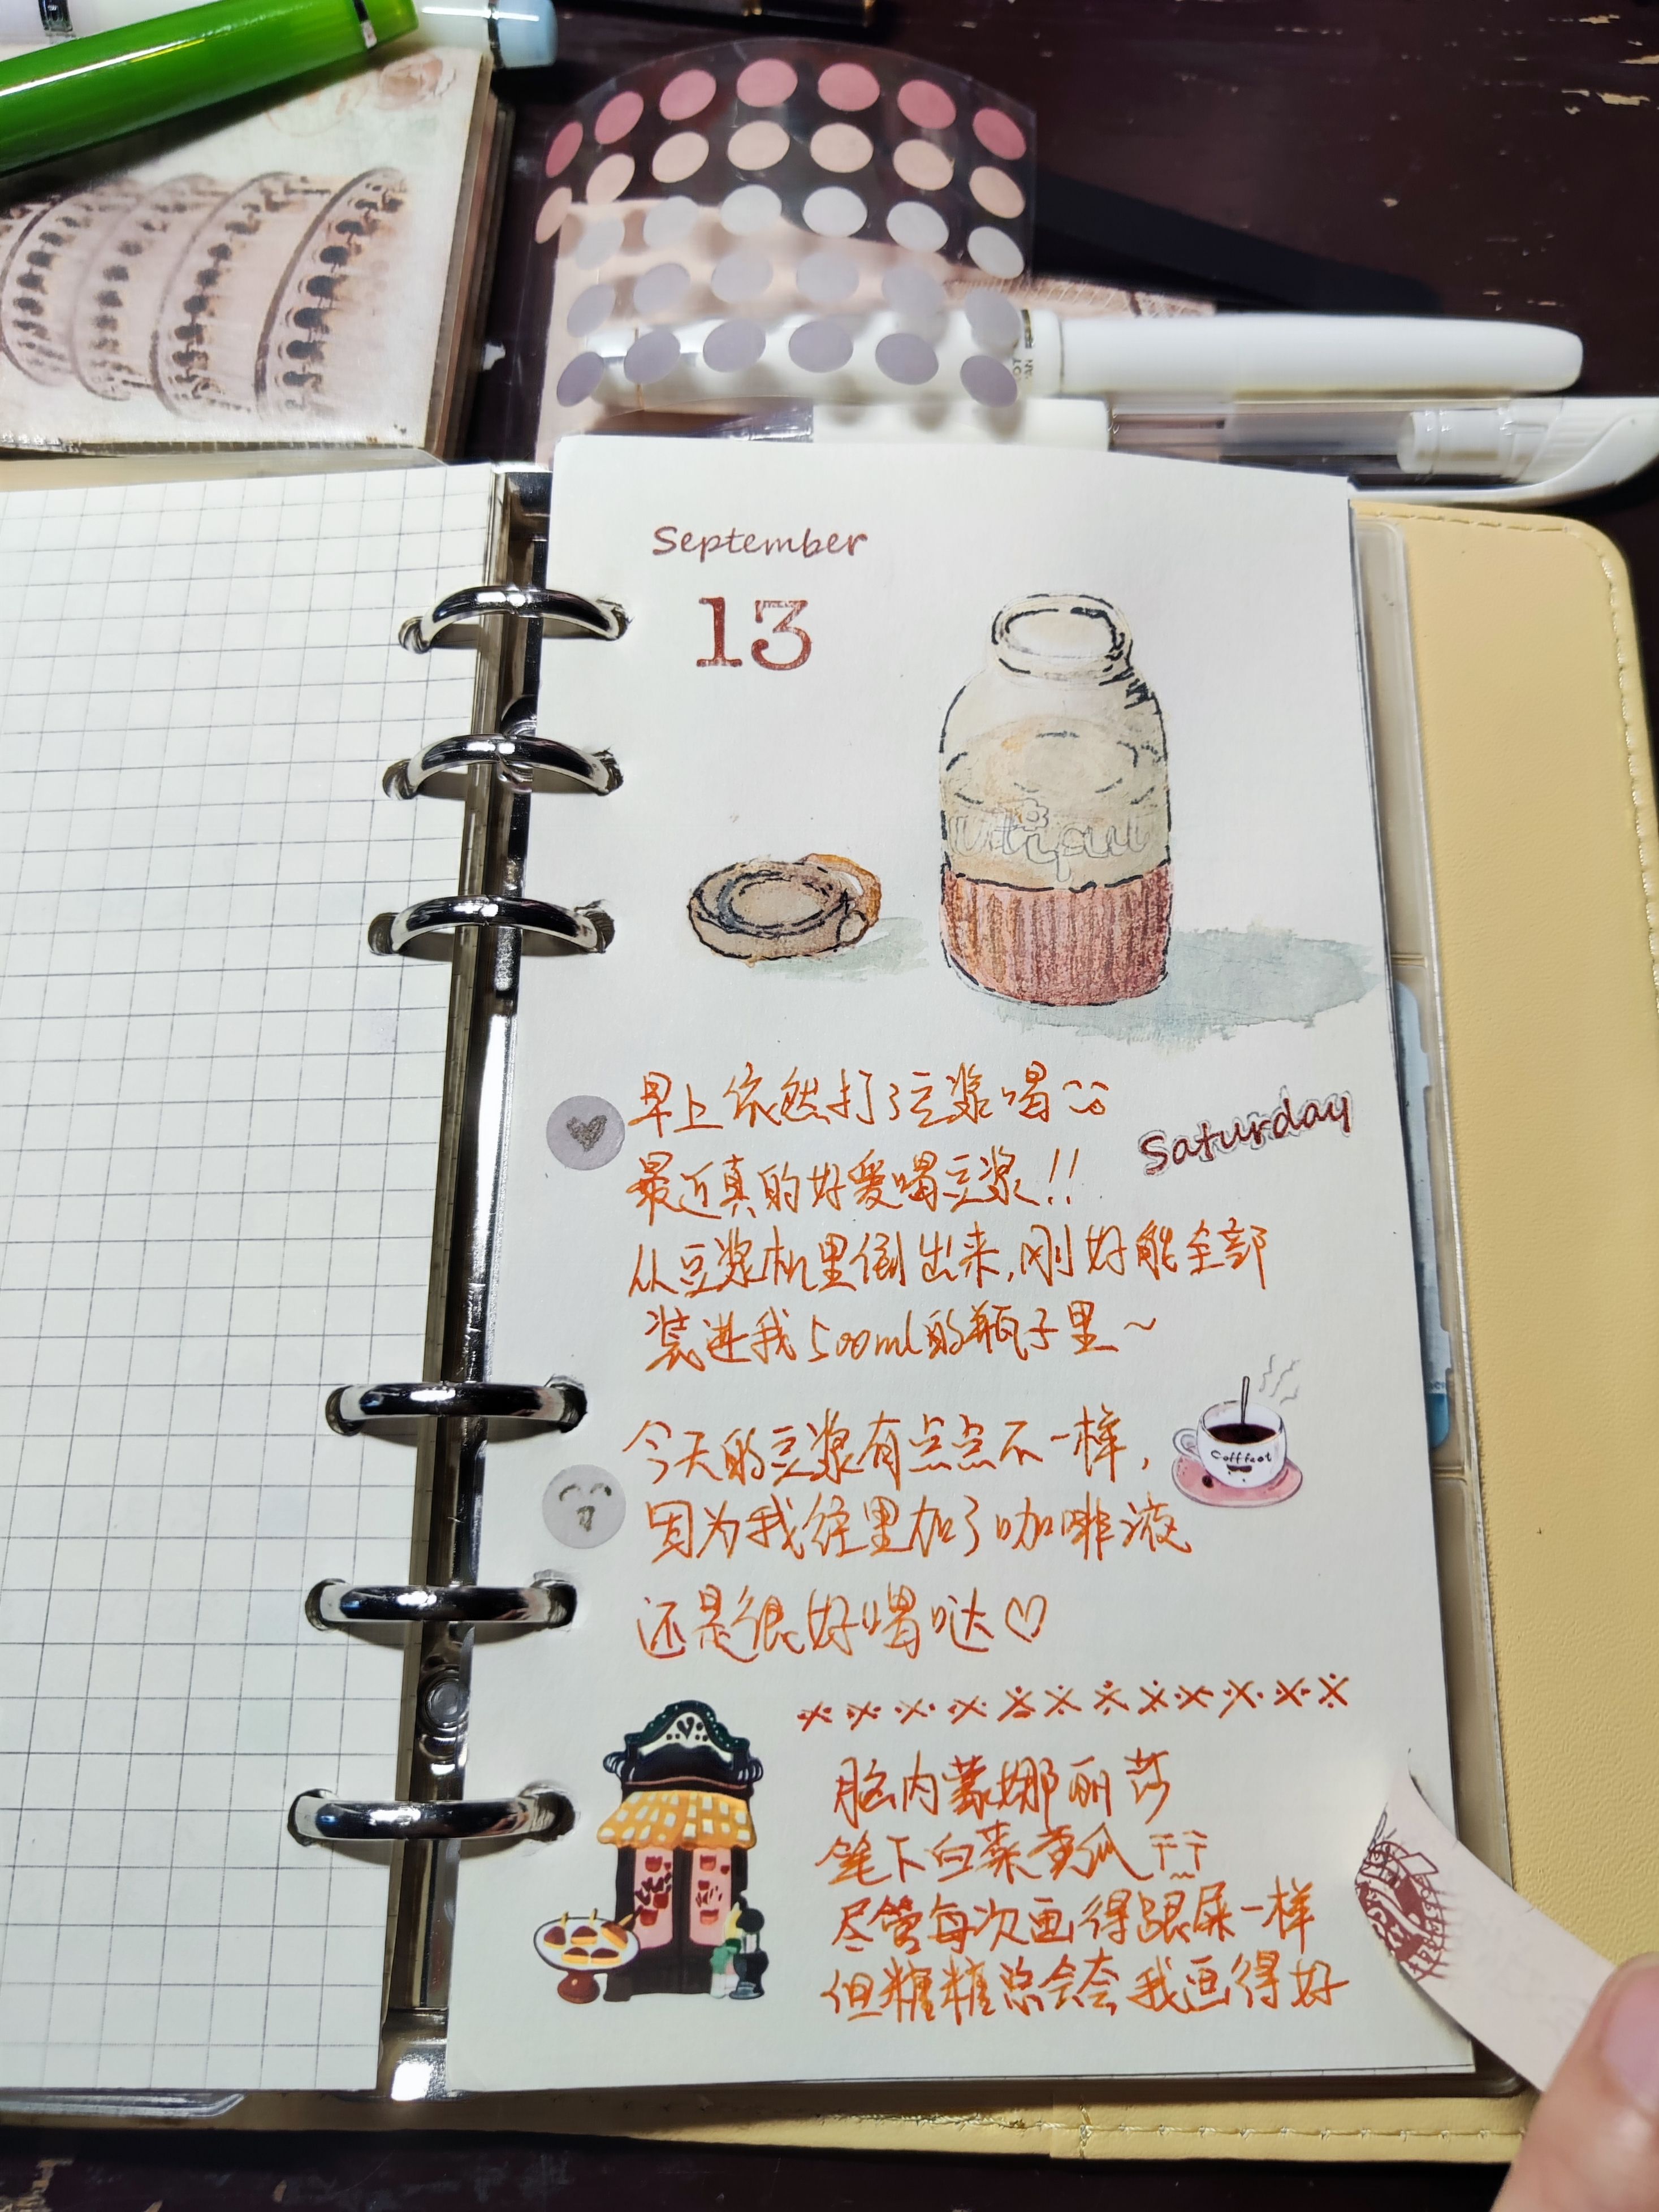 September
13
早上依然打了豆浆喝
Saturday
最近真的好爱喝豆浆!!
从豆浆机里倒出来,刚好能全部
装进我500ml的瓶子里~
今天的豆浆有点点不一样,
Cofffeet
因为我往里加了咖啡液
还是很好喝哒♡
※※※※※※※※※※※※
脑内蒙娜丽莎
笔下白菜黄瓜
尽管每次画得跟屎一样
但糖糖总会夸我画得好